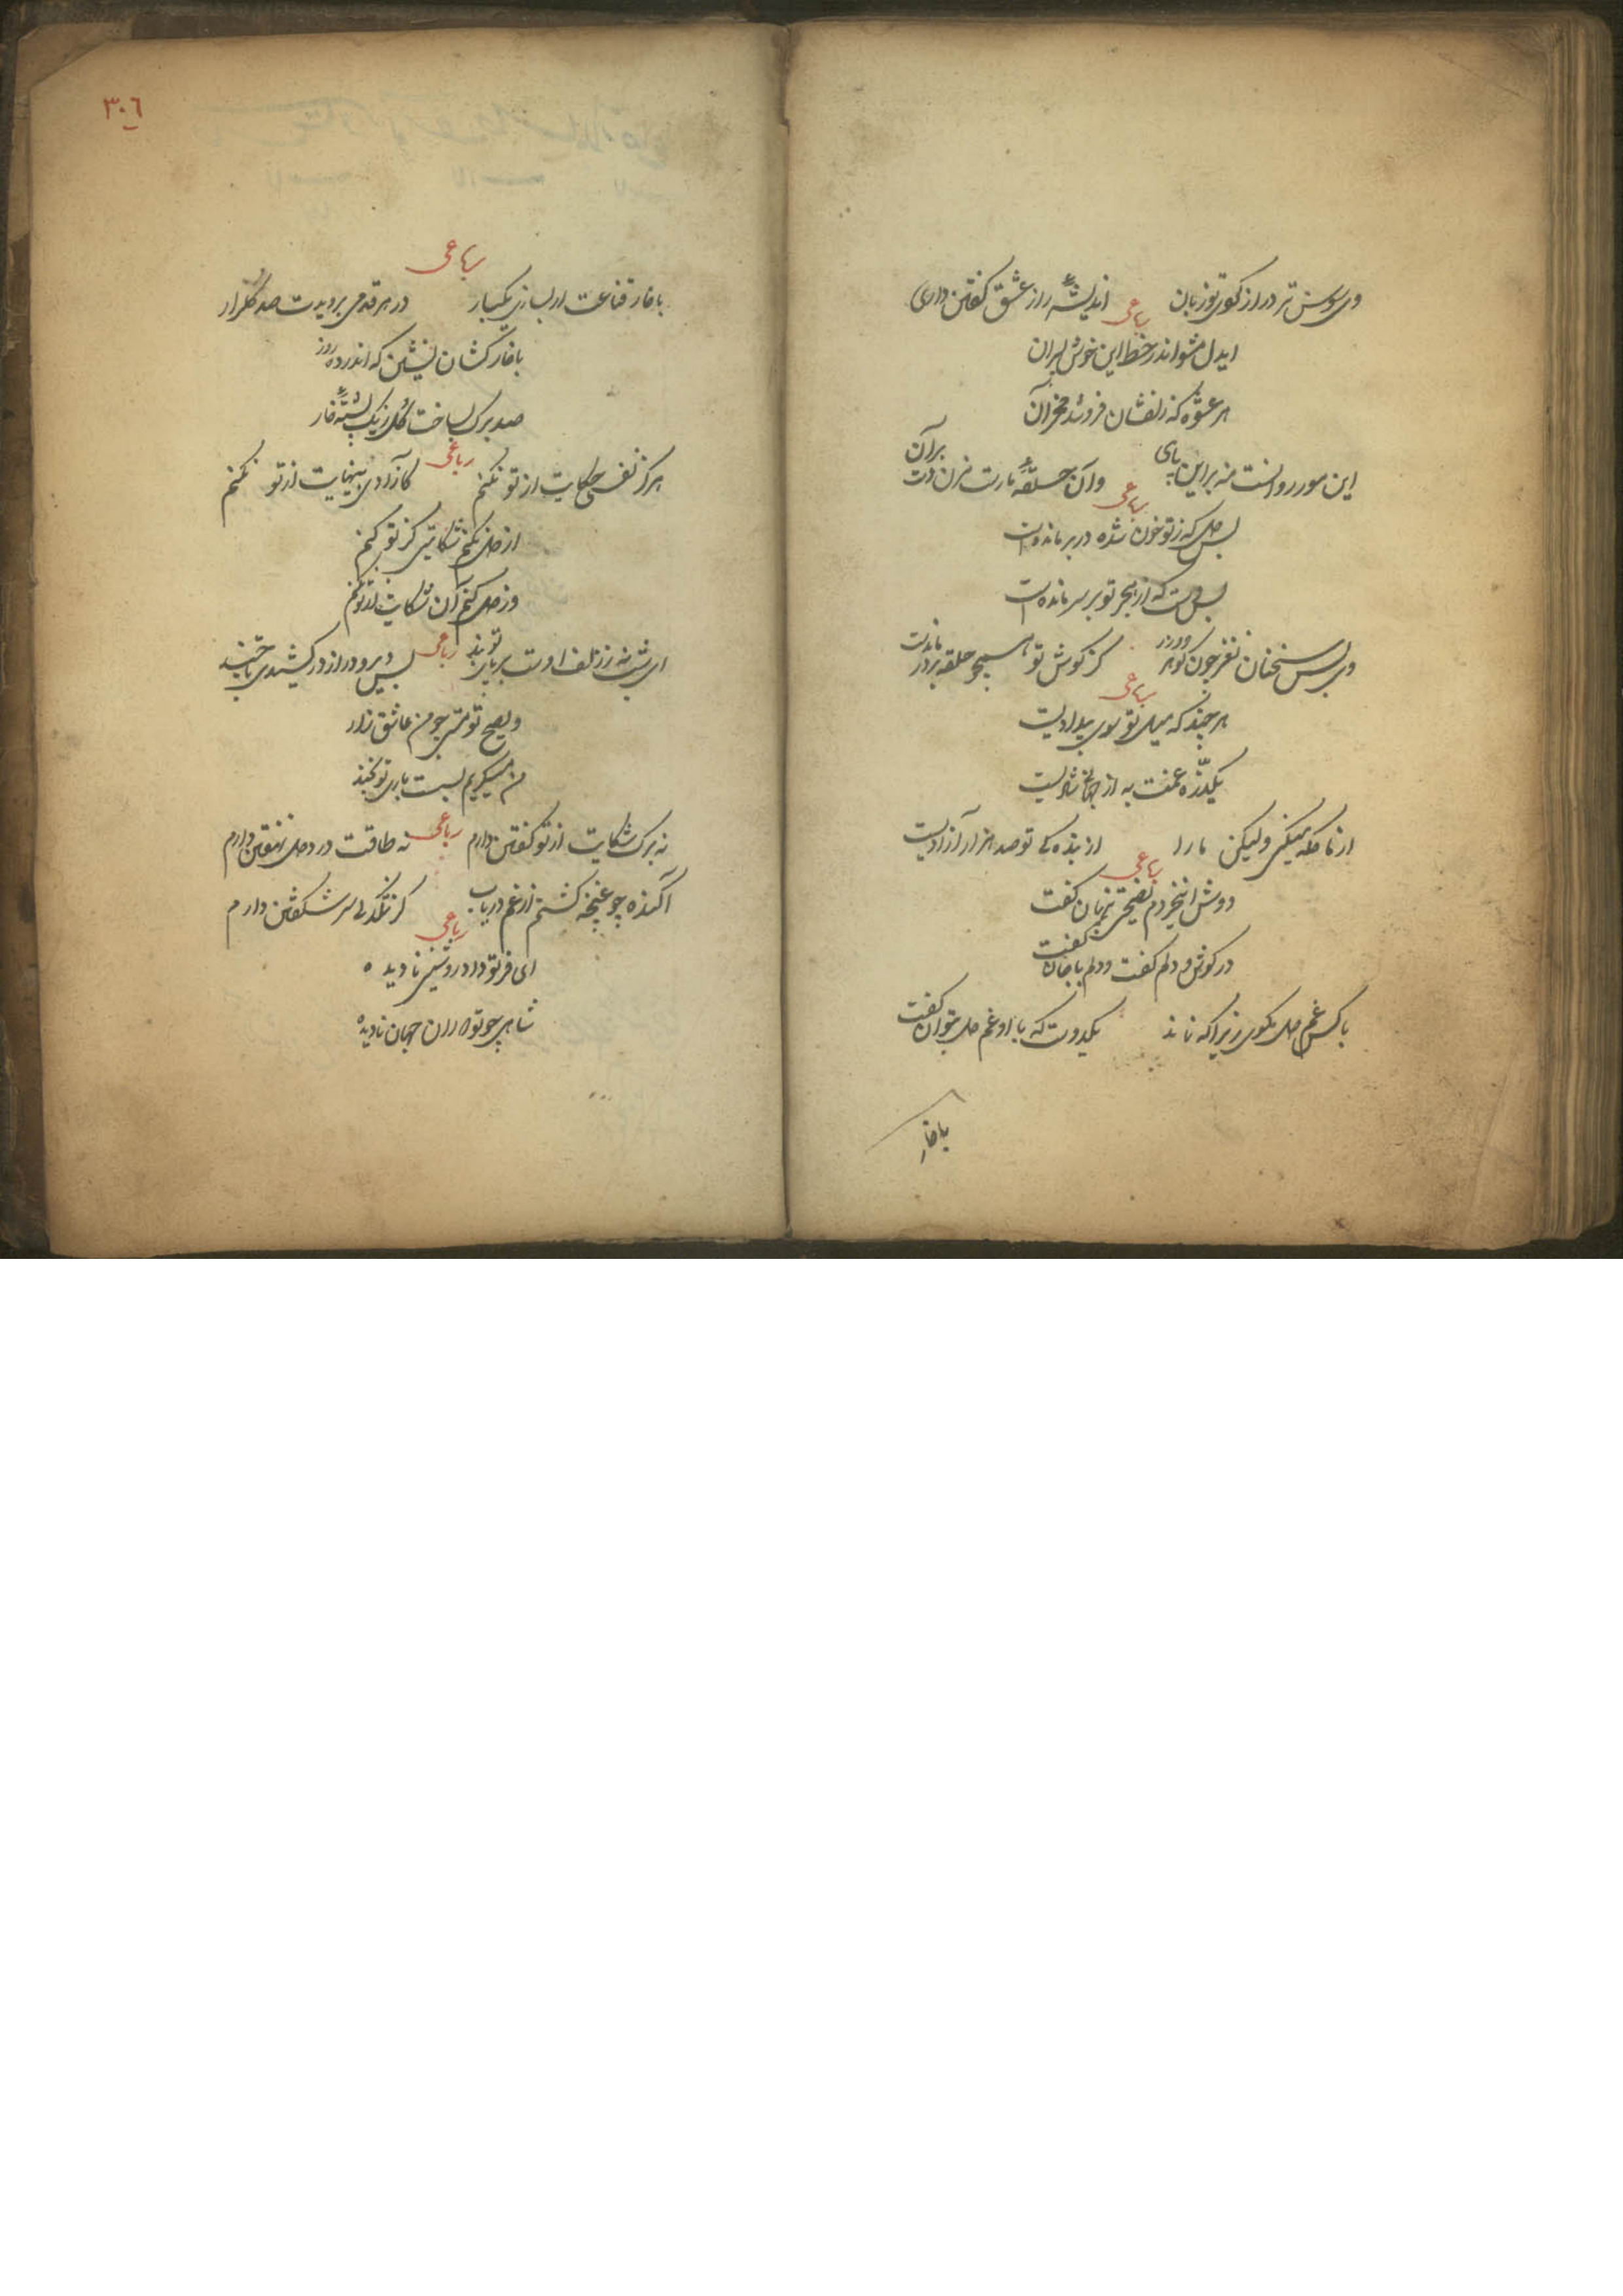 وی سوسن تر دراز کوی تو زبان اندیشهٔ راز عشق گفتن داری
رباعی
ایدل مشو اندر خط این خوش پسران
هر عشوه که زلفشان فروشد مخر آن
این مور روانست منه بر این پای وان حلقهٔ مارست مزن دست بر آن
رباعی
بس دل که ز تو خون شده در بر ماندست
بس دست که از هجر تو بر سر ماندست
وی بس سخنان نغز چون گوهر و در کز گوش تو همچو حلقه بر در ماندست
رباعی
هر چند که میل تو سوی بیدادیست
یکذره غمت به از جهانی شادیست
از ما گله میکنی ولیکن ما را از بندگی تو صد هزار آزادیست
رباعی
دوش این خردم نصیحتی پنهان گفت
در گوش دلم گفت و دلم با جان گفت
با کس غم دل مگوی زیرا که نماند یکدوست که با او غم دل بتوان گفت
با خار
٣٠٦
رباعی
با خار قناعت ار بسازی یکبار در هر قدمی برویدت صد گلزار
با خارکشان نشین که اندر ده روز
صد برگ بساخت گل ز یک پشتهٔ خار
رباعی
هرگز نفسی حکایت از تو نکنم کازادی بینهایت از تو نکنم
از دل نکنم شکایتی کز تو کنم
وز دل کنم آن شکایت از تو نکنم
رباعی
ای شانه ز زلف اوست بر پای تو بند بس دیر و دراز در کشیدی تا چند
و یصبح تو نیستی چو من عاشق زار
من میگریم بست باری تو بخند
رباعی
نه برگ شکایت از تو گفتن دارم نه طاقت درد دل نهفتن دارم
آکنده چو غنچه گشتم از غم دریاب کز تنگدلی سر شکفتن دارم
رباعی
ای فر تو داد روشنی نادیده
شاهی چو تو دوران جهان نادیده